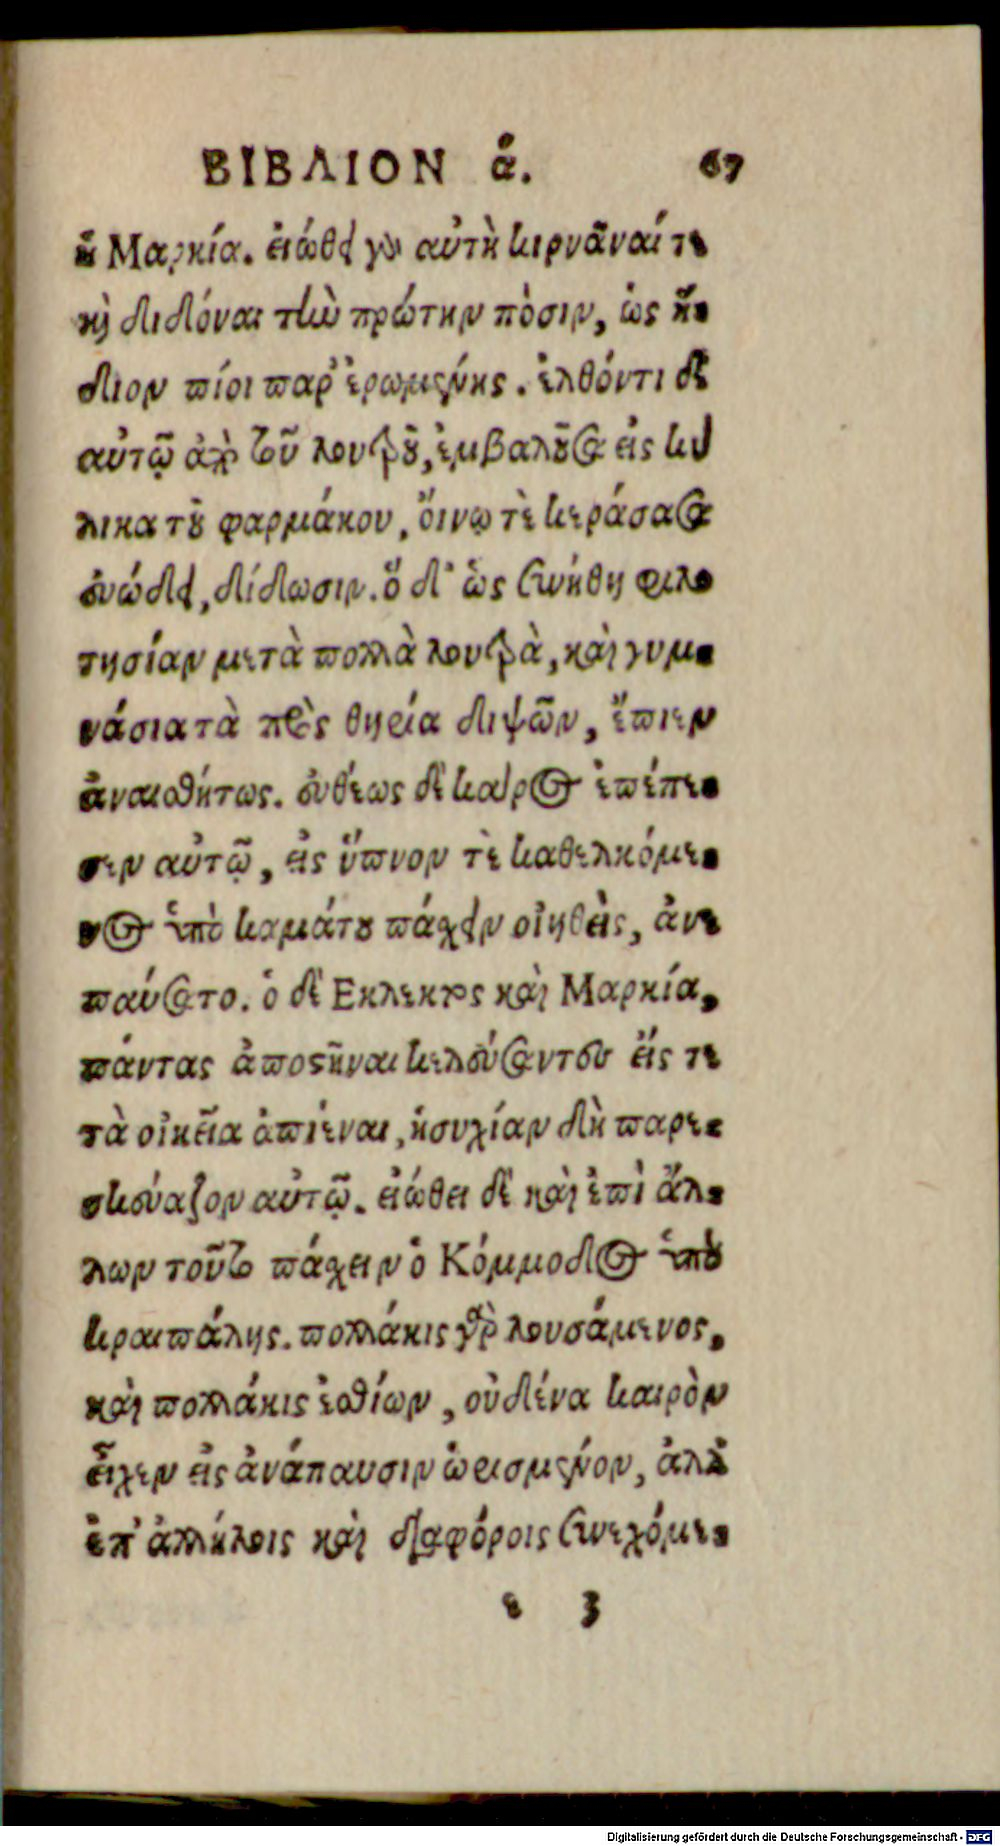 ΒΙΒΛΙΟΝ ά. 67
ἡ Μαρκία. εἰώθει γὰρ αὐτὴ κιρνᾶναί τε
καὶ διδόναι τὴν πρώτην πόσιν, ὡς ἥ-
διον πίοι παρ' ἐρωμένης. ἐλθόντι δὲ
αὐτῷ ἀπὸ τοῦ λουτροῦ, ἐμβαλοῦσα εἰς κύ
λικα τοῦ φαρμάκου, οἴνῳ τὲ κεράσασα
εὐώδει, δίδωσιν. ὅ δ' ὡς συνήθη φιλο
τησίαν μετὰ πολλὰ λουτρὰ, καὶ γυμ-
νάσια τὰ πρὸς θηρία διψῶν, ἔπιεν
ἀναισθήτως. εὐθέως δὲ κάρος ἐπέπε-
σεν αὐτῷ, εἰς ὕπνον τὲ καθελκόμε-
νος ὑπὸ καμάτου πάσχειν οἰηθεὶς, ἀνε
παύσατο. ὁ δὲ Εκλεκτος καὶ Μαρκία,
πάντας ἀποστῆναι κελεύσαντες εἴς τε
τὰ οἰκεῖα ἀπιέναι, ἡσυχίαν δὴ παρε-
σκεύαζον αὐτῷ. εἰώθει δὲ καὶ ἐπὶ ἄλ-
λων τοῦτο πάσχειν ὁ Κόμμοδος ὑπὸ
κραιπάλης. πολλάκις γὰρ λουσάμενος,
καὶ πολλάκις ἐσθίων, οὐδένα καιρὸν
εἶχεν εἰς ἀνάπαυσιν ὡρισμένον, ἀλλ'
ἐπ' ἀλλήλοις καὶ διαφόροις συνεχόμε-
e 3
Digitalisierung gefördert durch die Deutsche Forschungsgemeinschaft - DFG